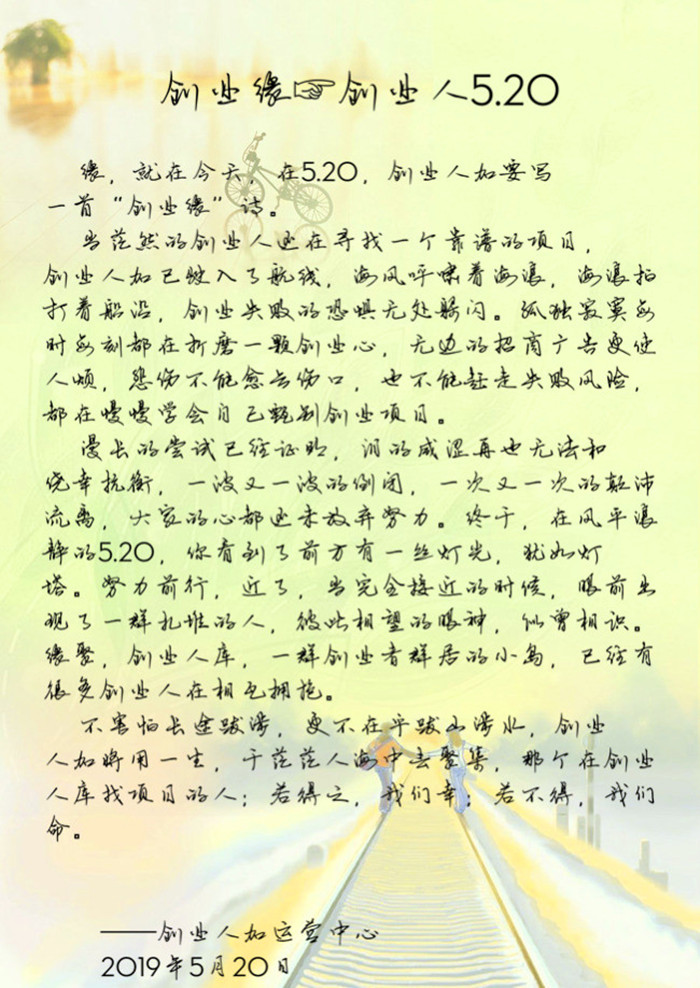 创业缘☞创业人5.20
缘，就在今天，在5.20，创业人加要写
一首“创业缘”诗。
当茫然的创业人还在寻找一个靠谱的项目，
创业人加已驶入了航线，海风呼啸着海浪，海浪拍
打着船沿，创业失败的恐惧无处躲闪。孤独寂寞每
时每刻都在折磨一颗创业心，无边的招商广告更使
人烦，悲伤不能愈合伤口，也不能赶走失败风险，
都在慢慢学会自己甄别创业项目。
漫长的尝试已经证明，泪的咸涩再也无法和
侥幸抗衡，一波又一波的倒闭，一次又一次的颠沛
流离，大家的心都还未放弃努力。终于，在风平浪
静的5.20，你看到了前方有一丝灯光，犹如灯
塔。努力前行，近了，当完全接近的时候，眼前出
现了一群扎堆的人，彼此相望的眼神，似曾相识。
缘聚，创业人库，一群创业者群居的小岛，已经有
很多创业人在相互拥抱。
不害怕长途跋涉，更不在乎跋山涉水，创业
人加将用一生，于茫茫人海中去聚集，那个在创业
人库找项目的人；若得之，我们幸；若不得，我们
命。
——创业人加运营中心
2019年5月20日